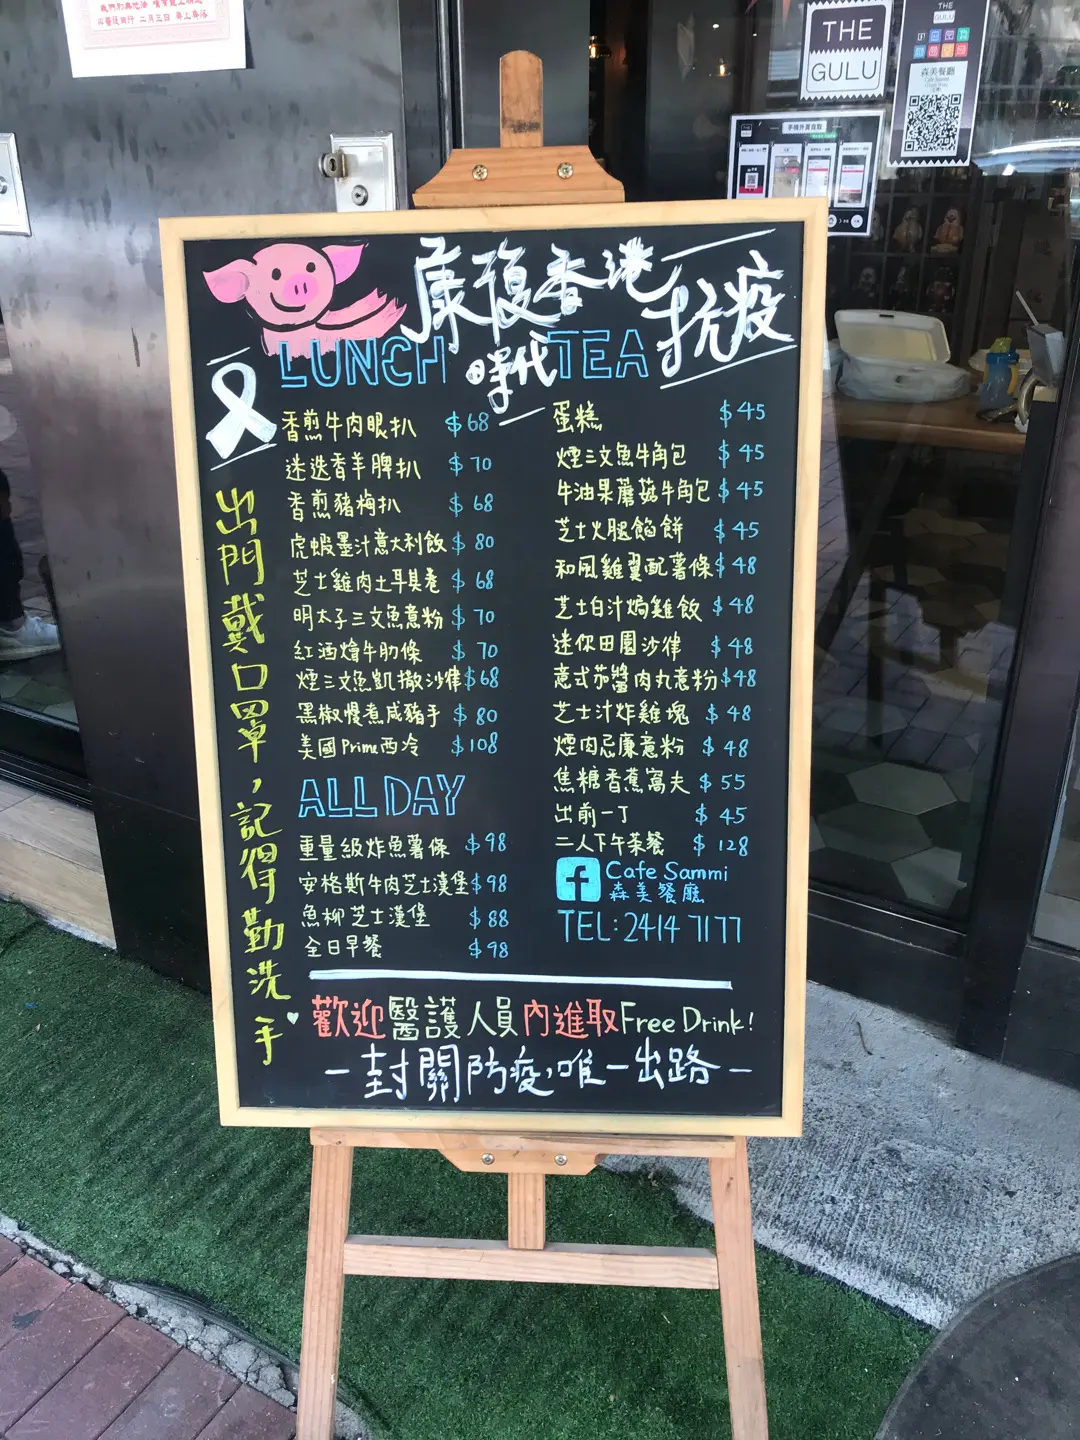 二月三日
THE
GULU
THE
GULU
森美餐廳
手機外賣自取
康復香港
時代抗疫
LUNCH
香煎牛肉眼扒 $68
迷迭香羊脾扒 $70
香煎豬梅扒 $68
虎蝦墨汁意大利飯 $80
芝士雞肉土耳其卷 $68
明太子三文魚意粉 $70
紅酒燴牛肋條 $70
煙三文魚凱撒沙律 $68
黑椒慢煮咸豬手 $80
美國Prime西冷 $108
ALL DAY
重量級炸魚薯條 $98
安格斯牛肉芝士漢堡 $98
魚柳芝士漢堡 $88
全日早餐 $98
TEA
蛋糕 $45
煙三文魚牛角包 $45
牛油果蘑菇牛角包 $45
芝士火腿餡餅 $45
和風雞翼配薯條 $48
芝士白汁焗雞飯 $48
迷你田園沙律 $48
意式茄醬肉丸意粉 $48
芝士汁炸雞塊 $48
煙肉忌廉意粉 $48
焦糖香蕉窩夫 $55
出前一丁 $45
二人下午茶餐 $128
f Cafe Sammi
森美餐廳
TEL: 2414 7177
出門戴口罩，記得勤洗手
歡迎醫護人員內進取Free Drink!
－封關防疫，唯一出路－